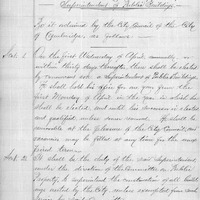 Superintendent of Public Buildings.
Be it ordained by the City Council of the City
of Cambridge, as follows:
Sect. 1. On the first Wednesday of April, annually, or
within thirty days thereafter, there shall be elected
by concurrent vote a Superintendent of Public Buildings,
who shall hold his office for one year from the
first Monday of April in the year in which he
shall be elected, and until his successor is elected
and qualified, unless sooner removed. He shall be
removable at the pleasure of the City Council, and
vacancies may be filled at any time for the unex-
pired term.
Sect. 2. It shall be the duty of the said Superintendent
under the direction of the Committee on Public
Property, to superintend the construction of all build-
ings erected by the City, unless